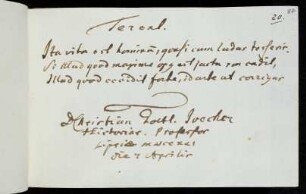 20.
Terent.
Ita vita est hominũ, quasi cum ludas tesseris.
Si illud quod maxime opus est jactu non cadit,
Illud quod cecidit forte, id arte ut corrigas
D Christian Gottl. Joecher
Historiar. Professor
Lipsiae
die 7 Aprilis